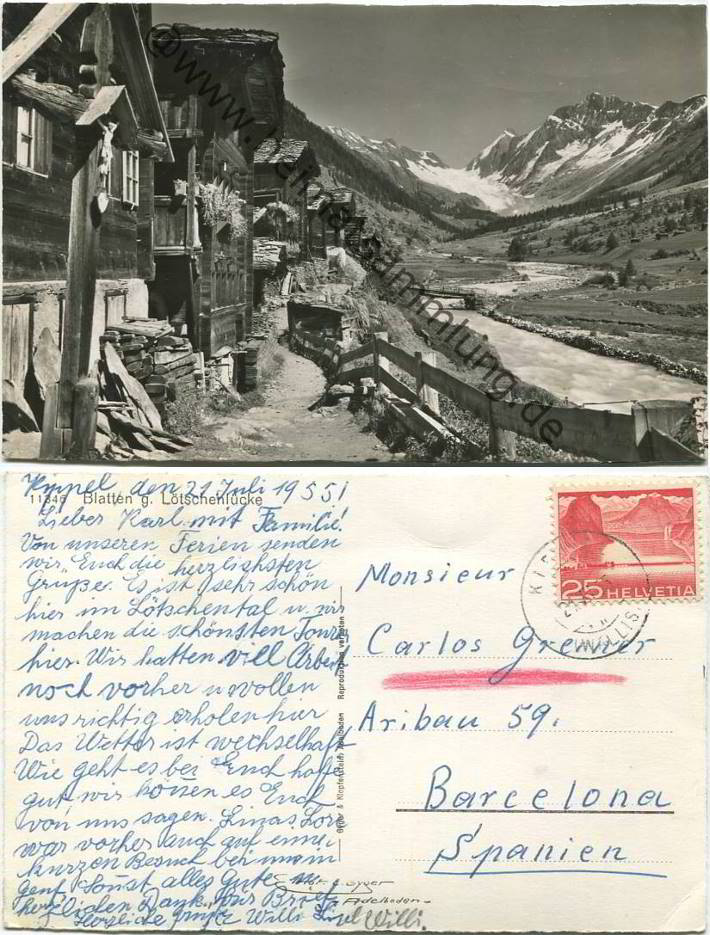 ©www.heimatsammlung.de
Kippel, den 21 Juli 1955!
11346 Blatten g. Lötschenlücke
Lieber Karl mit Familie!
Von unseren Ferien senden
wir Euch die herzlichsten
Grüße. Es ist sehr schön
hier im Lötschental u. wir
machen die schönsten Toure
hier. Wir hatten vill Arbeit
noch vorher u wollen
uns richtig erholen hier
Das Wetter ist wechselhaft
Wie geht es bei Euch hoffe
gut wir können es Euch
von uns sagen.
war vorher auch auf einen
kurzen Besuch bei uns in
genf Sonst alles Gute u
herzlichen Dank für Brief
Herzliche Grüße Willi Willi.
Gyger
Adelboden
Gyger & Klopfenstein Adelboden Reproduction verboten
25 HELVETIA
KIPPEL
Monsieur
Carlos Greiner
Aribau 59.
Barcelona
Spanien